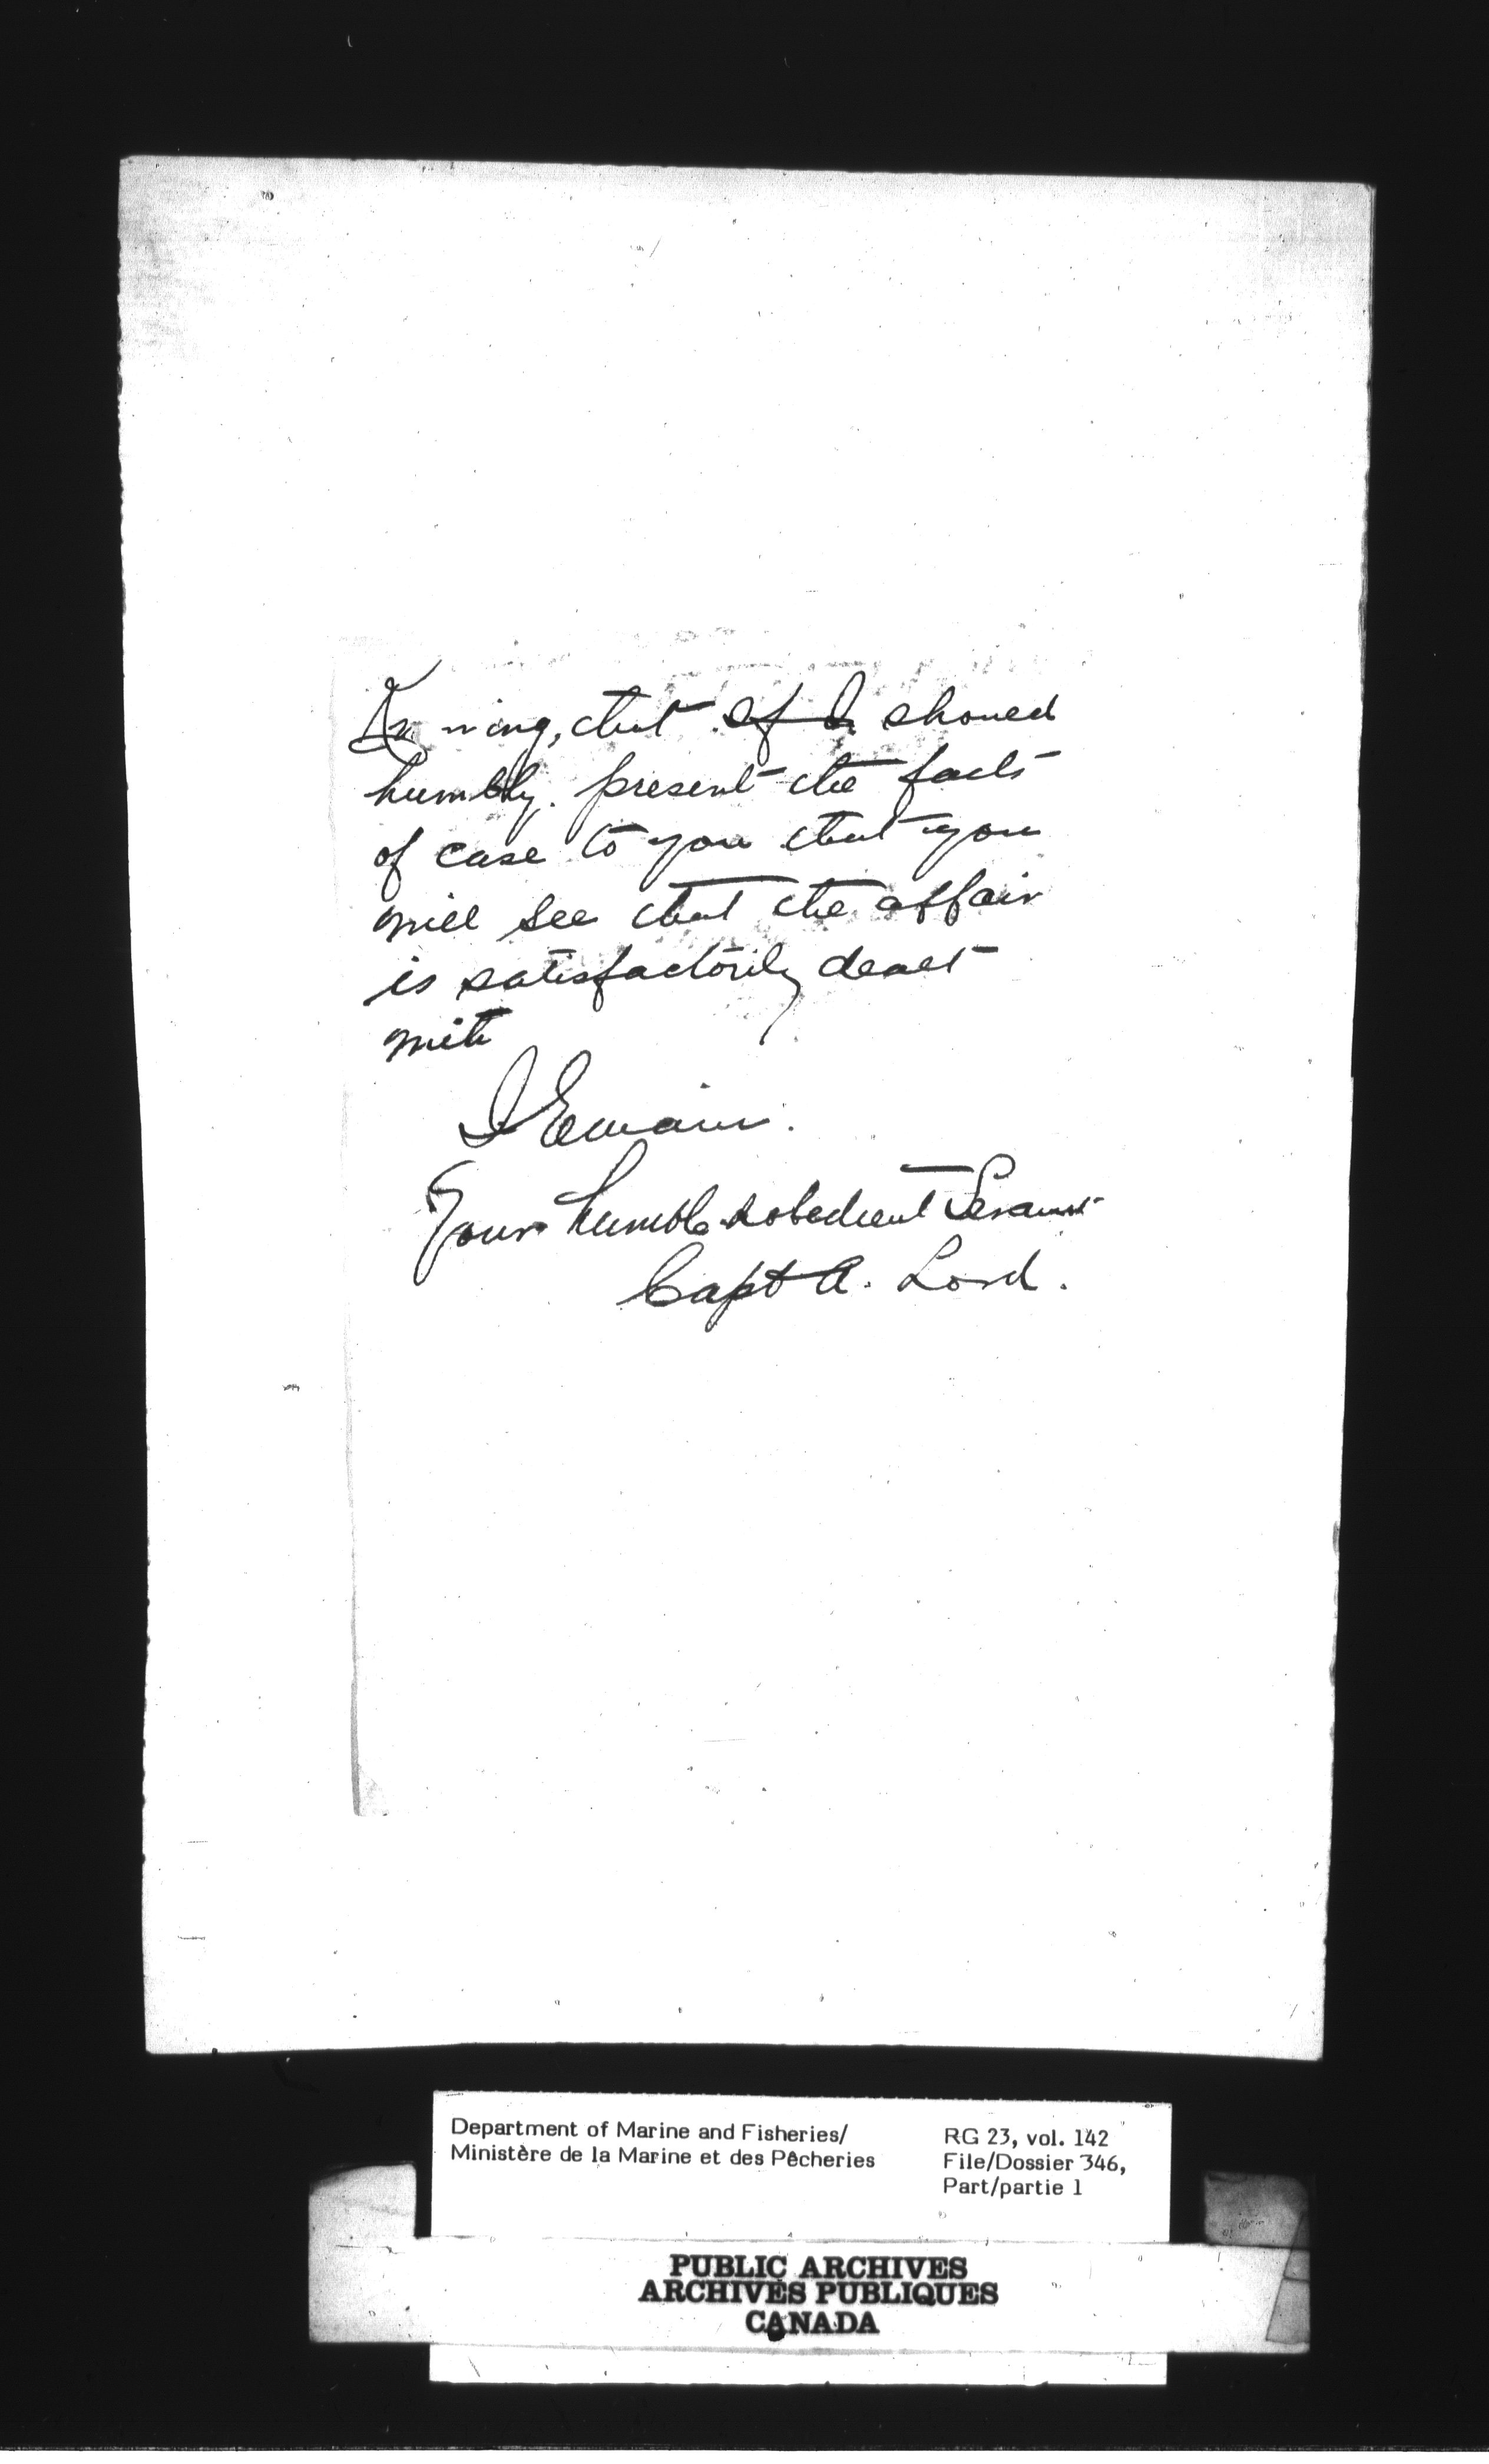 Knowing, that if I should
humbly. present the facts
of case to you that you
will see that the affair
is satisfactorily dealt
with
I Remain.
Your humble & obedient Servant
Capt A. Lord.
Department of Marine and Fisheries/
Ministère de la Marine et des Pêcheries
RG 23, vol. 142
File/Dossier 346,
Part/partie 1
PUBLIC ARCHIVES
ARCHIVES PUBLIQUES
CANADA